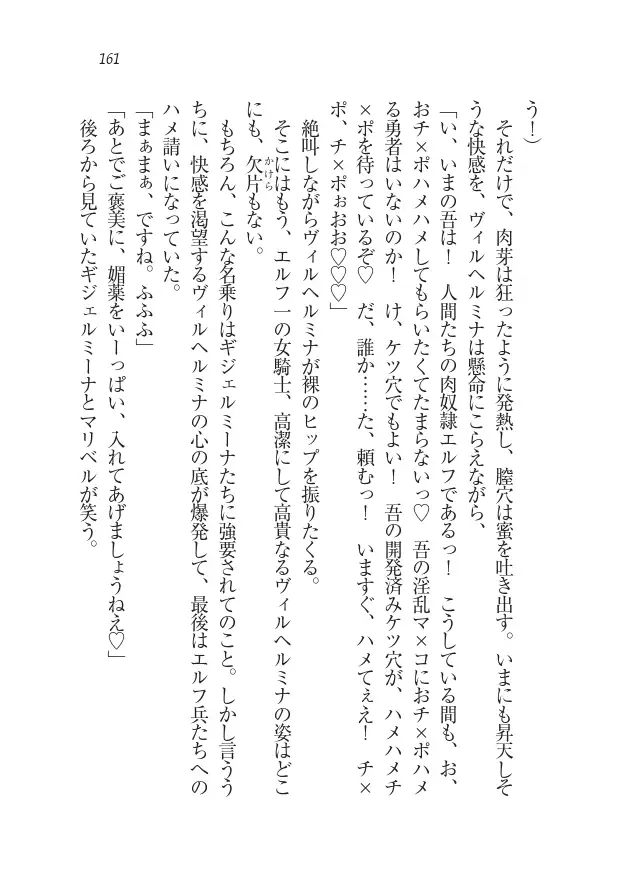 161
う！）
それだけで、肉芽は狂ったように発熱し、膣穴は蜜を吐き出す。いまにも昇天しそ
うな快感を、ヴィルヘルミナは懸命にこらえながら、
「い、いまの吾は！　人間たちの肉奴隷エルフであるっ！　こうしている間も、お、
おチ×ポハメハメしてもらいたくてたまらないっ♡　吾の淫乱マ×コにおチ×ポハメ
る勇者はいないのか！　け、ケツ穴でもよい！　吾の開発済みケツ穴が、ハメハメチ
×ポを待っているぞ♡　だ、誰か……た、頼むっ！　いますぐ、ハメてぇえ！　チ×
ポ、チ×ポぉおお♡♡♡」
絶叫しながらヴィルヘルミナが裸のヒップを振りたくる。
そこにはもう、エルフ一の女騎士、高潔にして高貴なるヴィルヘルミナの姿はどこ
にも、欠片かけらもない。
もちろん、こんな名乗りはギジェルミーナたちに強要されてのこと。しかし言うう
ちに、快感を渇望するヴィルヘルミナの心の底が爆発して、最後はエルフ兵たちへの
ハメ請いになっていた。
「まぁまぁ、ですね。ふふふ」
「あとでご褒美に、媚薬をいーっぱい、入れてあげましょうねえ♡」
後ろから見ていたギジェルミーナとマリベルが笑う。